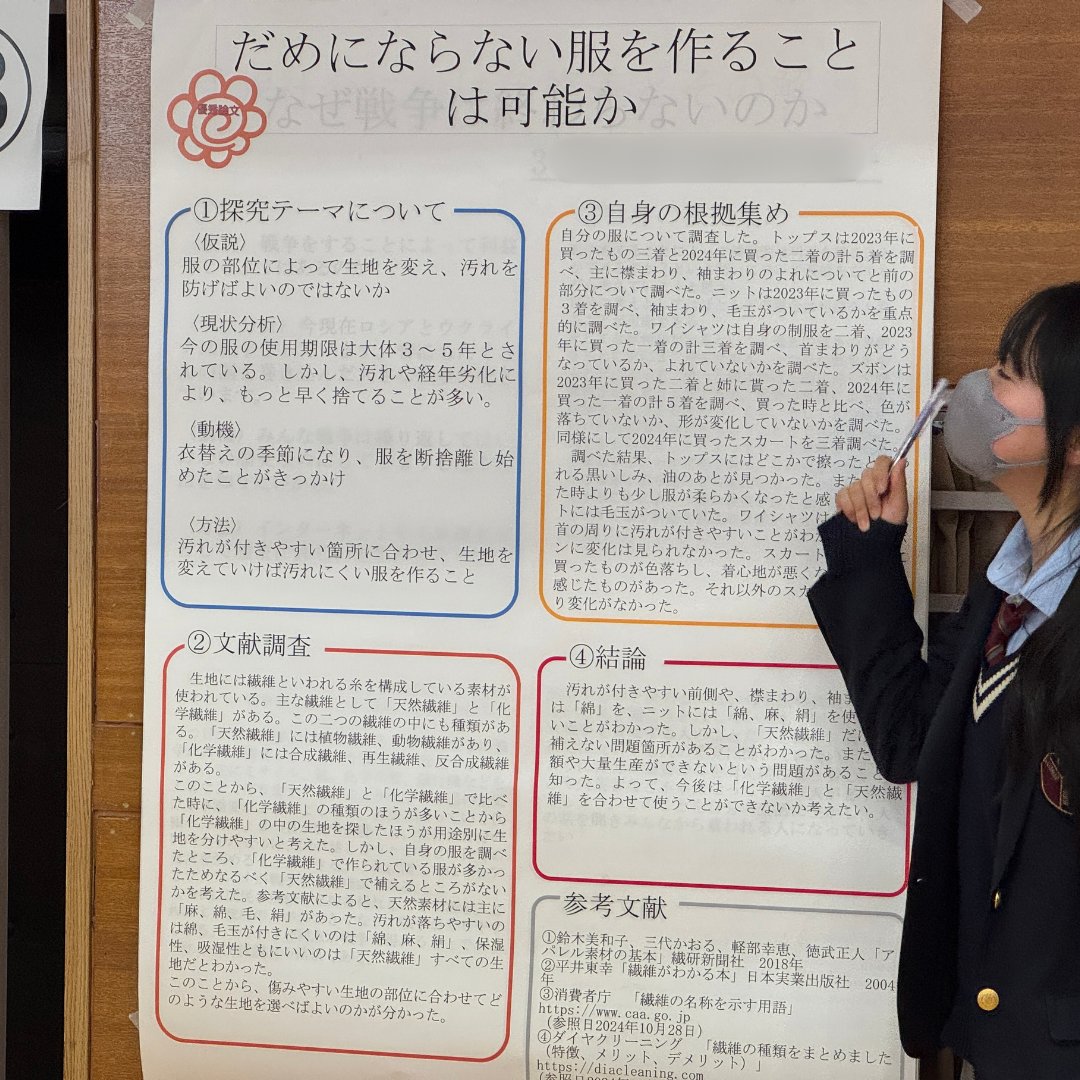 だめにならない服を作ること
は可能か
優秀論文
①探究テーマについて
〈仮説〉
服の部位によって生地を変え、汚れを
防げばよいのではないか
〈現状分析〉
今の服の使用期限は大体３～５年とさ
れている。しかし、汚れや経年劣化に
より、もっと早く捨てることが多い。
〈動機〉
衣替えの季節になり、服を断捨離し始
めたことがきっかけ
〈方法〉
汚れが付きやすい箇所に合わせ、生地を
変えていけば汚れにくい服を作ること
②文献調査
生地には繊維といわれる糸を構成している素材が
使われている。主な繊維として「天然繊維」と「化
学繊維」がある。この二つの繊維の中にも種類があ
る。「天然繊維」には植物繊維、動物繊維があり、
「化学繊維」には合成繊維、再生繊維、反合成繊維
がある。
このことから、「天然繊維」と「化学繊維」で比べ
た時に、「化学繊維」の種類のほうが多いことから
「化学繊維」の中の生地を探したほうが用途別に生
地を分けやすいと考えた。しかし、自身の服を調べ
たところ、「化学繊維」で作られている服が多かっ
たためなるべく「天然繊維」で補えるところがない
かを考えた。参考文献によると、天然素材には主に
「麻、綿、毛、絹」があった。汚れが落ちやすいの
は綿、毛玉が付きにくいのは「綿、麻、絹」、保湿
性、吸湿性ともにいいのは「天然繊維」すべての生
地だとわかった。
このことから、傷みやすい生地の部位に合わせてど
のような生地を選べばよいのかが分かった。
③自身の根拠集め
自分の服について調査した。トップスは2023年に
買ったもの三着と2024年に買った二着の計５着を調
べ、主に襟まわり、袖まわりのよれについてと前の
部分について調べた。ニットは2023年に買ったもの
３着を調べ、袖まわり、毛玉がついているかを重点
的に調べた。ワイシャツは自身の制服を二着、2023
年に買った一着の計三着を調べ、首まわりがどう
なっているか、よれていないかを調べた。ズボンは
2023年に買った二着と姉に貰った二着、2024年に
買った一着の計５着を調べ、買った時と比べ、色が
落ちていないか、形が変化していないかを調べた。
同様にして2024年に買ったスカートを三着調べた。
調べた結果、トップスにはどこかで擦ったと
れる黒いしみ、油のあとが見つかった。また
た時よりも少し服が柔らかくなったと感
トには毛玉がついていた。ワイシャツは
首の周りに汚れが付きやすいことがわ
ンに変化は見られなかった。スカート
買ったものが色落ちし、着心地が悪く
感じたものがあった。それ以外のスカ
り変化がなかった。
④結論
汚れが付きやすい前側や、襟まわり、袖ま
は「綿」を、ニットには「綿、麻、絹」を使
いことがわかった。しかし、「天然繊維」だ
補えない問題箇所があることがわかった。また
額や大量生産ができないという問題があること
知った。よって、今後は「化学繊維」と「天然繊
維」を合わせて使うことができないか考えたい。
参考文献
①鈴木美和子、三代かおる、軽部幸恵、徳武正人「ア
パレル素材の基本」繊研新聞社　2018年
②平井東幸「繊維がわかる本」日本実業出版社　2004
年
③消費者庁　「繊維の名称を示す用語」
https://www.caa.go.jp
（参照日2024年10月28日）
④ダイヤクリーニング　「繊維の種類をまとめました
（特徴、メリット、デメリット）」
https://diacleaning.com